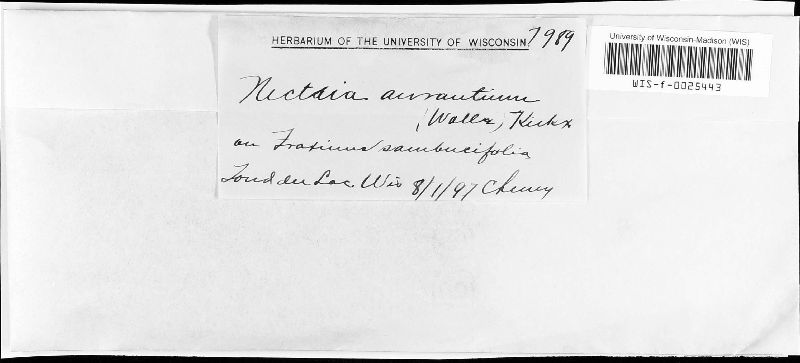 HERBARIUM OF THE UNIVERSITY OF WISCONSIN. 7989
University of Wisconsin-Madison (WIS)
WIS-f-0025443
Nectria aurantium
(Wallr) Kickx
on Fraxinus sambucifolia
Fond du Lac. Wis 8/1/97 Cheney